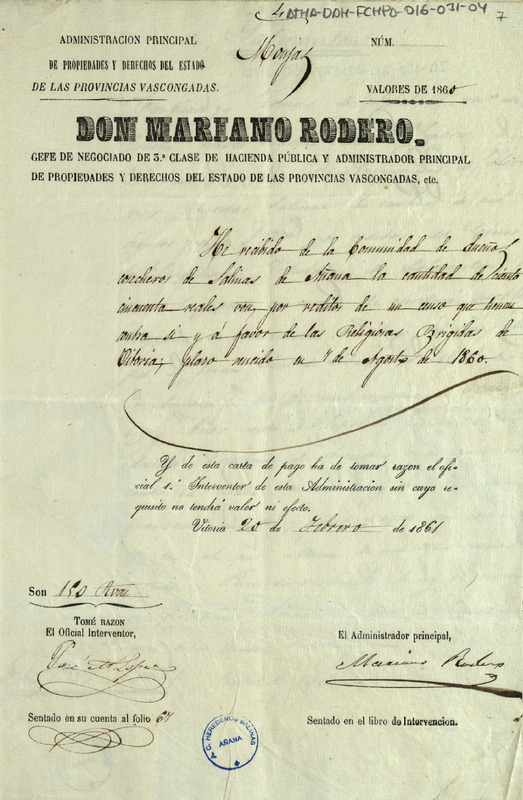 ATHA-DAH-FCHPO-016-031-04
7
ADMINISTRACION PRINCIPAL
DE PROPIEDADES Y DERECHOS DEL ESTADO
DE LAS PROVINCIAS VASCONGADAS.
Monjas
NÚM.
VALORES DE 1860
DON MARIANO RODERO.
GEFE DE NEGOCIADO DE 3.ª CLASE DE HACIENDA PÚBLICA Y ADMINISTRADOR PRINCIPAL
DE PROPIEDADES Y DERECHOS DEL ESTADO DE LAS PROVINCIAS VASCONGADAS, etc.
He recibido de la Comunidad de dueños
cosecheros de Salinas de Añana la cantidad de ciento
cincuenta reales von, por reditos de un censo que tienen
contra si y á favor de las Religiosas Brigidas de
Vitoria; plazo vencido en 7 de Agosto de 1860.
Y de esta carta de pago ha de tomar razon el ofi-
cial 1.º Interventor de esta Administracion sin cuyo re-
quisito no tendrá valor ni efecto.
Vitoria 20 de Febrero de 1861
Son 150 Rvon
TOMÉ RAZON
El Oficial Interventor,
José M. Lopez
El Administrador principal,
Mariano Rodero
Sentado en su cuenta al folio 64
Sentado en el libro de Intervencion.
C. HEREDEROS SALINAS
AÑANA